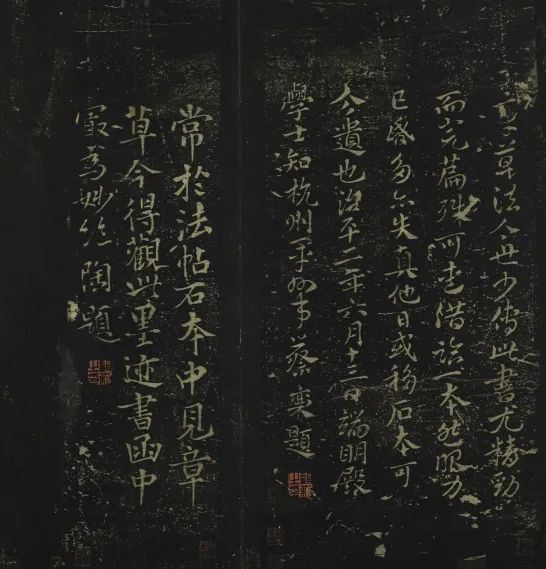 草法人世少傳此書尤精勁
而完篇殊可愛借臨一本然眼力
已昏多失真他日或移石本可
分遺也治平二年六月十三日端明殿
學士知杭州軍州事蔡襄題
常於法帖石本中見章
草今得觀此墨迹書函中
最為妙絕陶題